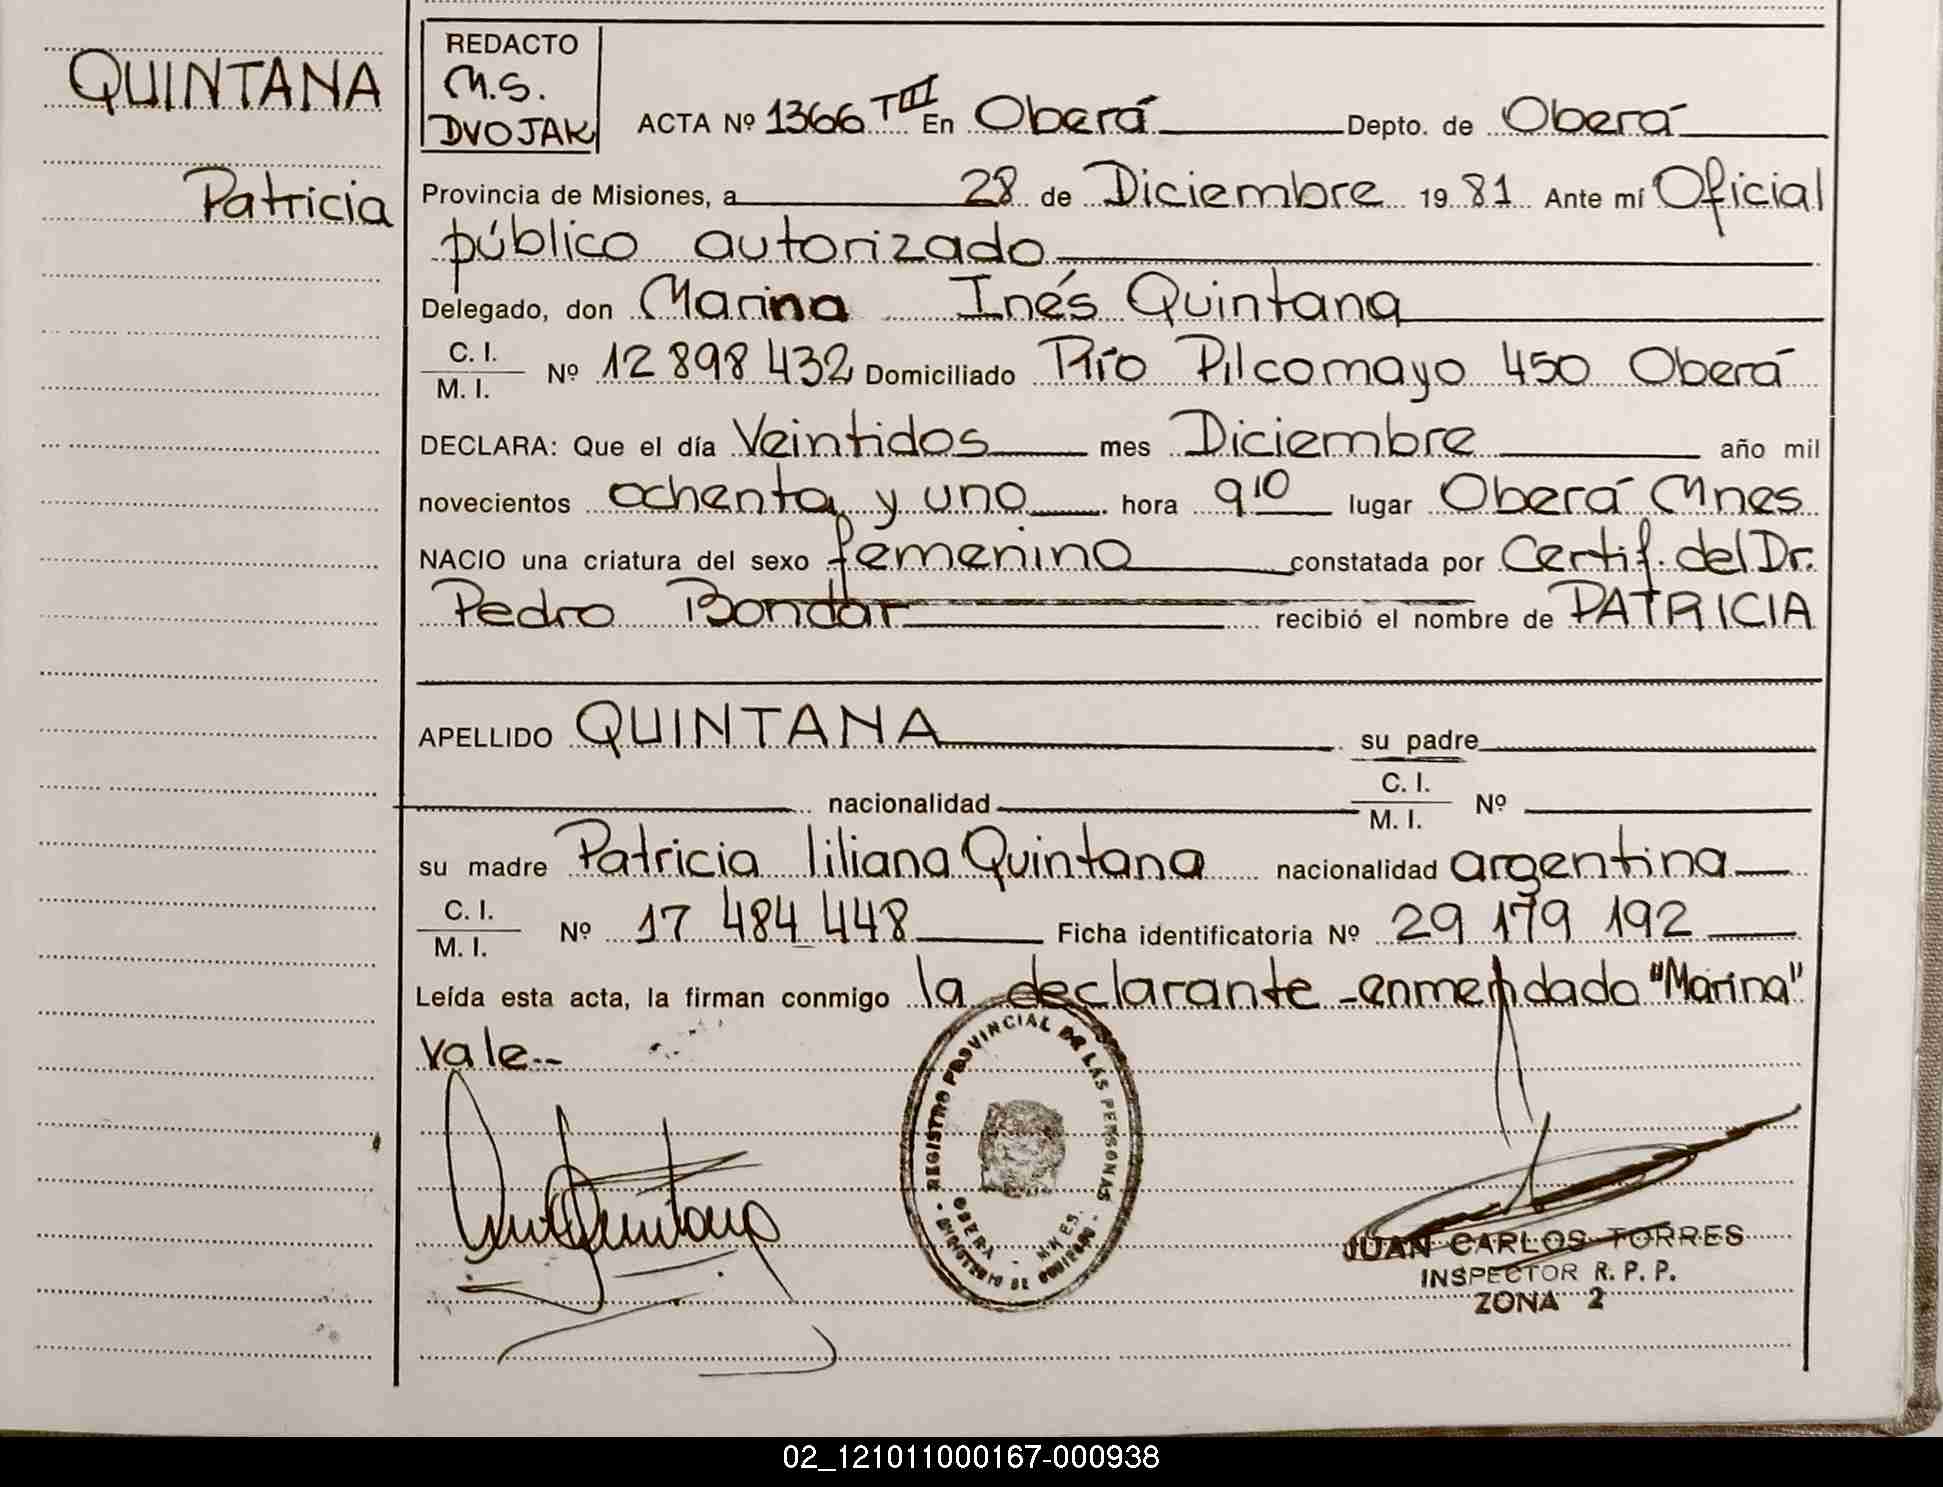 QUINTANA
Patricia
REDACTO
M.S.
DVOJAK
ACTA Nº 1366 TIII En Oberá Depto. de Oberá
Provincia de Misiones, a 28 de Diciembre 19 81 Ante mí Oficial
público autorizado
Delegado, don Marina Inés Quintana
C. I.
M. I.
Nº 12 898 432 Domiciliado Río Pilcomayo 450 Oberá
DECLARA: Que el día Veintidos mes Diciembre año mil
novecientos ochenta y uno hora 9 10 lugar Oberá Mnes
NACIO una criatura del sexo femenino constatada por Certif. del Dr.
Pedro Bondar recibió el nombre de PATRICIA
APELLIDO QUINTANA su padre
nacionalidad C. I.
M. I. Nº
su madre Patricia liliana Quintana nacionalidad argentina
C. I.
M. I.
Nº 17 484 448 Ficha identificatoria Nº 29 179 192
Leída esta acta, la firman conmigo la declarante - enmendado "Marina"
vale--
REGISTRO PROVINCIAL DE LAS PERSONAS
OBERA - MNES.
JUAN CARLOS TORRES
INSPECTOR R. P. P.
ZONA 2
02_121011000167-000938